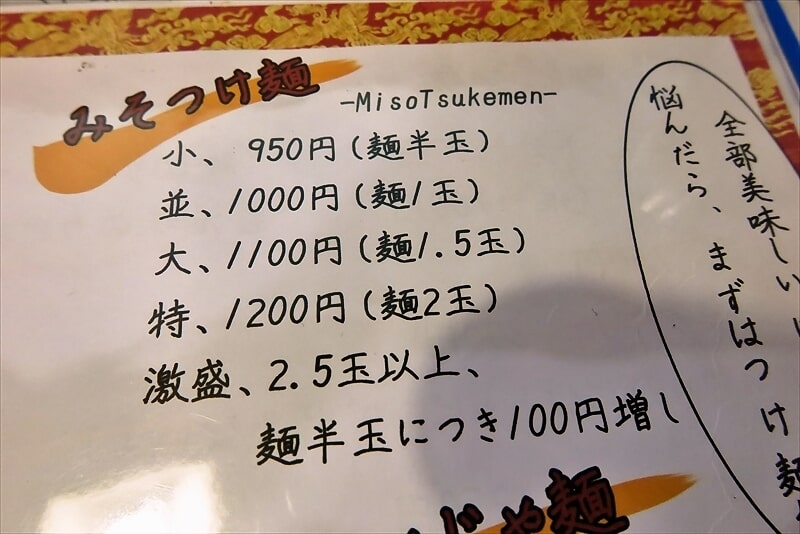 みそつけ麺
-MisoTsukemen-
小、950円(麺半玉)
並、1000円(麺1玉)
大、1100円(麺1.5玉)
特、1200円(麺2玉)
激盛、2.5玉以上、
麺半玉につき100円増し
じゃ麺
全部美味しい
悩んだら、まずはつけ麺